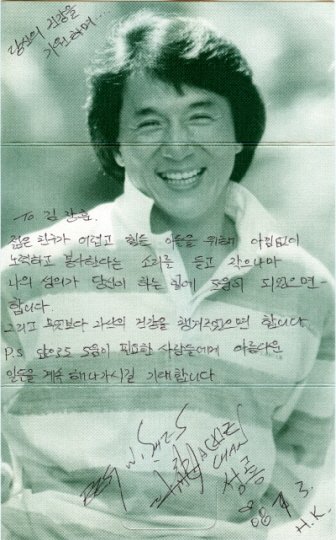 당신의 건강을
기원하며....
To 김 간호.
젊은 친구가 어렵고 힘든 이웃을 위해 아낌없이
노력하고 봉사한다는 소리를 듣고 작으나마
나의 성의가 당신이 하는 일에 도움이 되었으면
합니다.
그리고 무엇보다 자신의 건강을 챙겨주었으면 합니다.
P.S 앞으로도 도움이 필요한 사람들에게 아름다운
일들을 계속 해나가시길 기대합니다
JACKIE
CHAN
성룡
H.K.